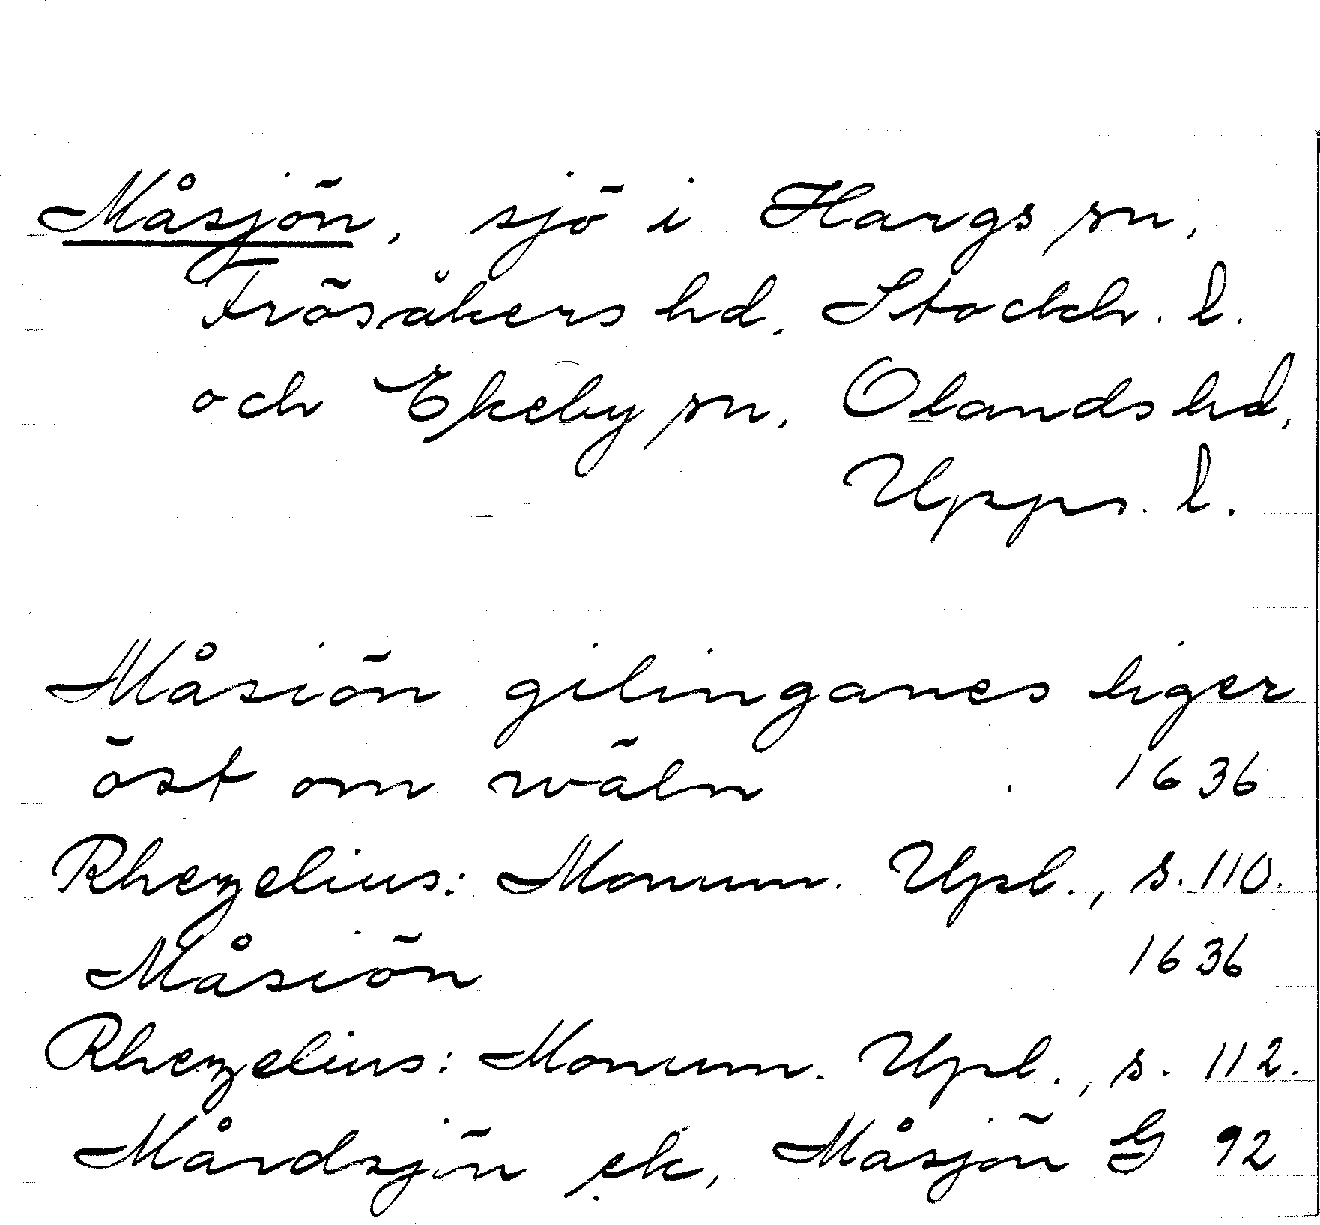 Måsjön, sjö i Hargs sn,
Frösåkers hd. Stockh. l.
och Ekeby sn, Olands hd,
Upps. l.
Måsiön gilinganes liger
öst om wäln . 1636
Rhezelius: Monum. Upl., s. 110.
Måsiön 1636
Rhezelius: Monum. Upl., s. 112.
Mårdsjön ek, Måsjön G 92